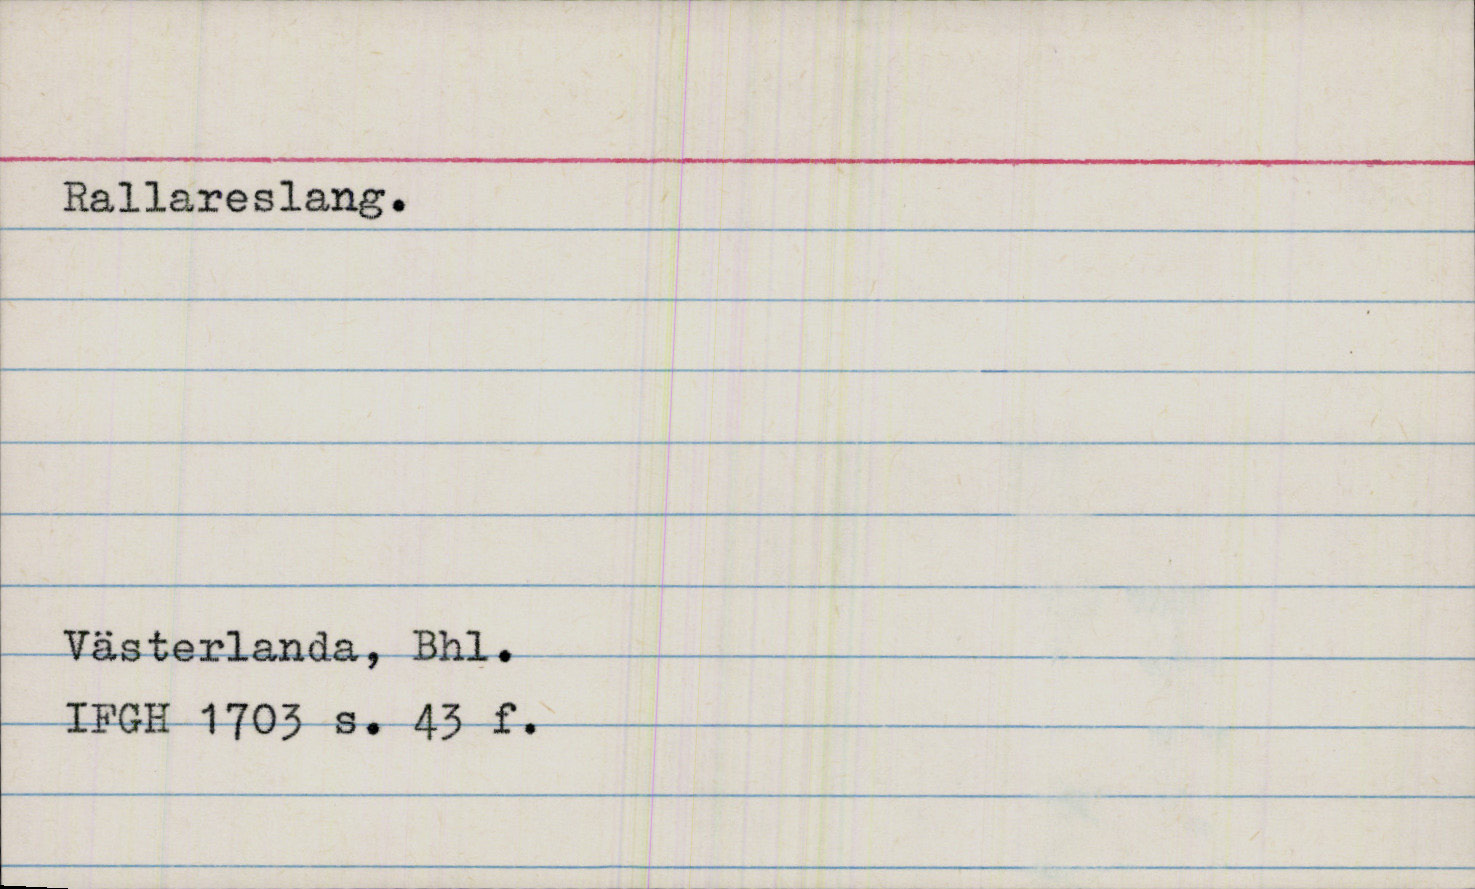 Rallareslang.
Västerlanda, Bhl.
IFGH 1703 s. 43 f.